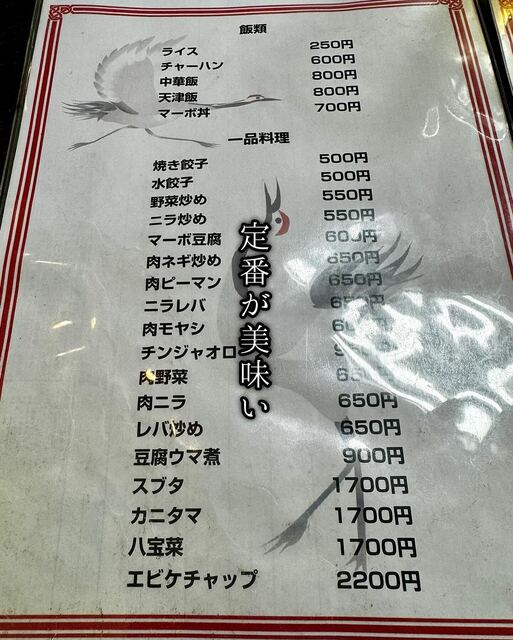 飯類
ライス 250円
チャーハン 600円
中華飯 800円
天津飯 800円
マーボ丼 700円
一品料理
焼き餃子 500円
水餃子 500円
野菜炒め 550円
ニラ炒め 550円
マーボ豆腐 600円
肉ネギ炒め 650円
肉ピーマン 650円
ニラレバ
肉モヤシ
チンジャオロ
肉野菜
肉ニラ 650円
レバ炒め 650円
豆腐ウマ煮 900円
スブタ 1700円
カニタマ 1700円
八宝菜 1700円
エビケチャップ 2200円
定番が美味い